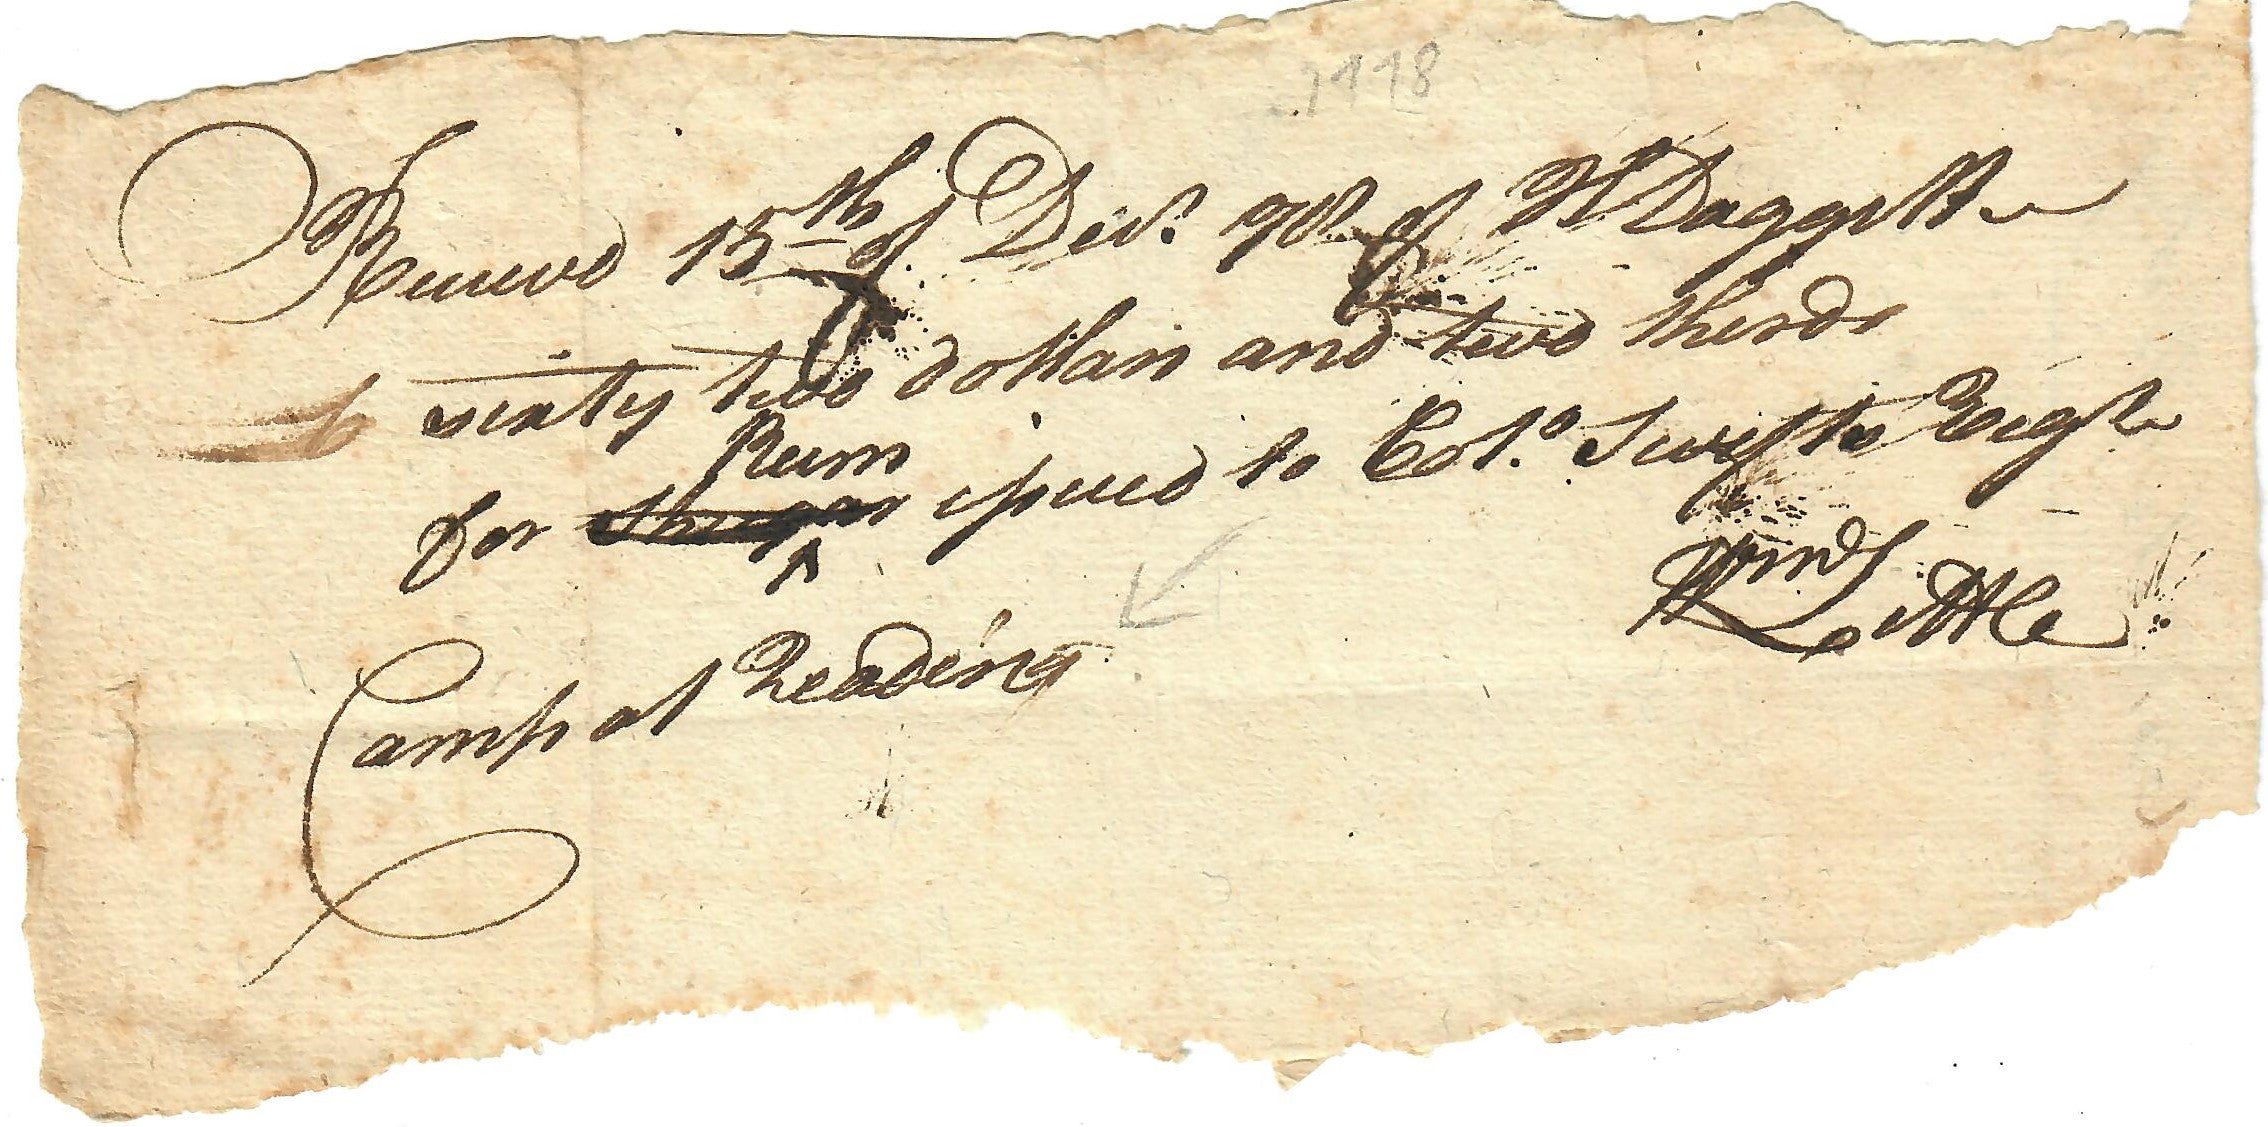 1778
Receivd 15th of Decr. 78 of H Daggett
sixty two dollars and two thirds
Rum
for Shugar issued to Colo. Swifts Regt
Wm Little
Camp at Reading